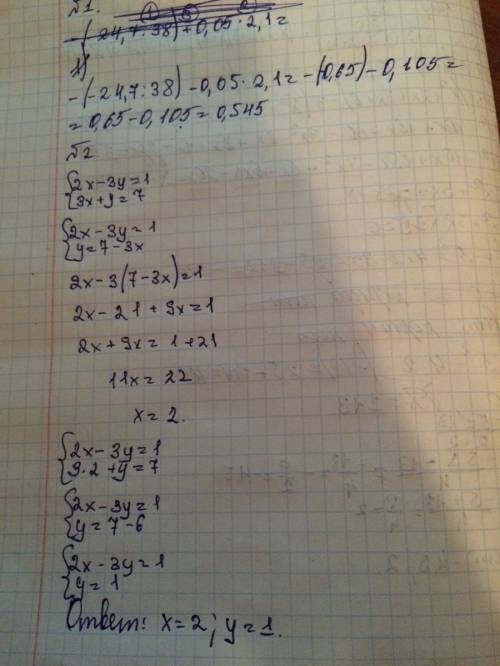 №1.
1)
-(-24,7:38) - 0,05·2,1 = -(0,65) - 0,105 =
= 0,65 - 0,105 = 0,545
№2
{2x - 3y = 1
3x + y = 7
{2x - 3y = 1
y = 7 - 3x
2x - 3(7 - 3x) = 1
2x - 21 + 9x = 1
2x + 9x = 1 + 21
11x = 22
x = 2.
{2x - 3y = 1
3·2 + y = 7
{2x - 3y = 1
y = 7 - 6
{2x - 3y = 1
y = 1
Ответ: x = 2; y = 1.